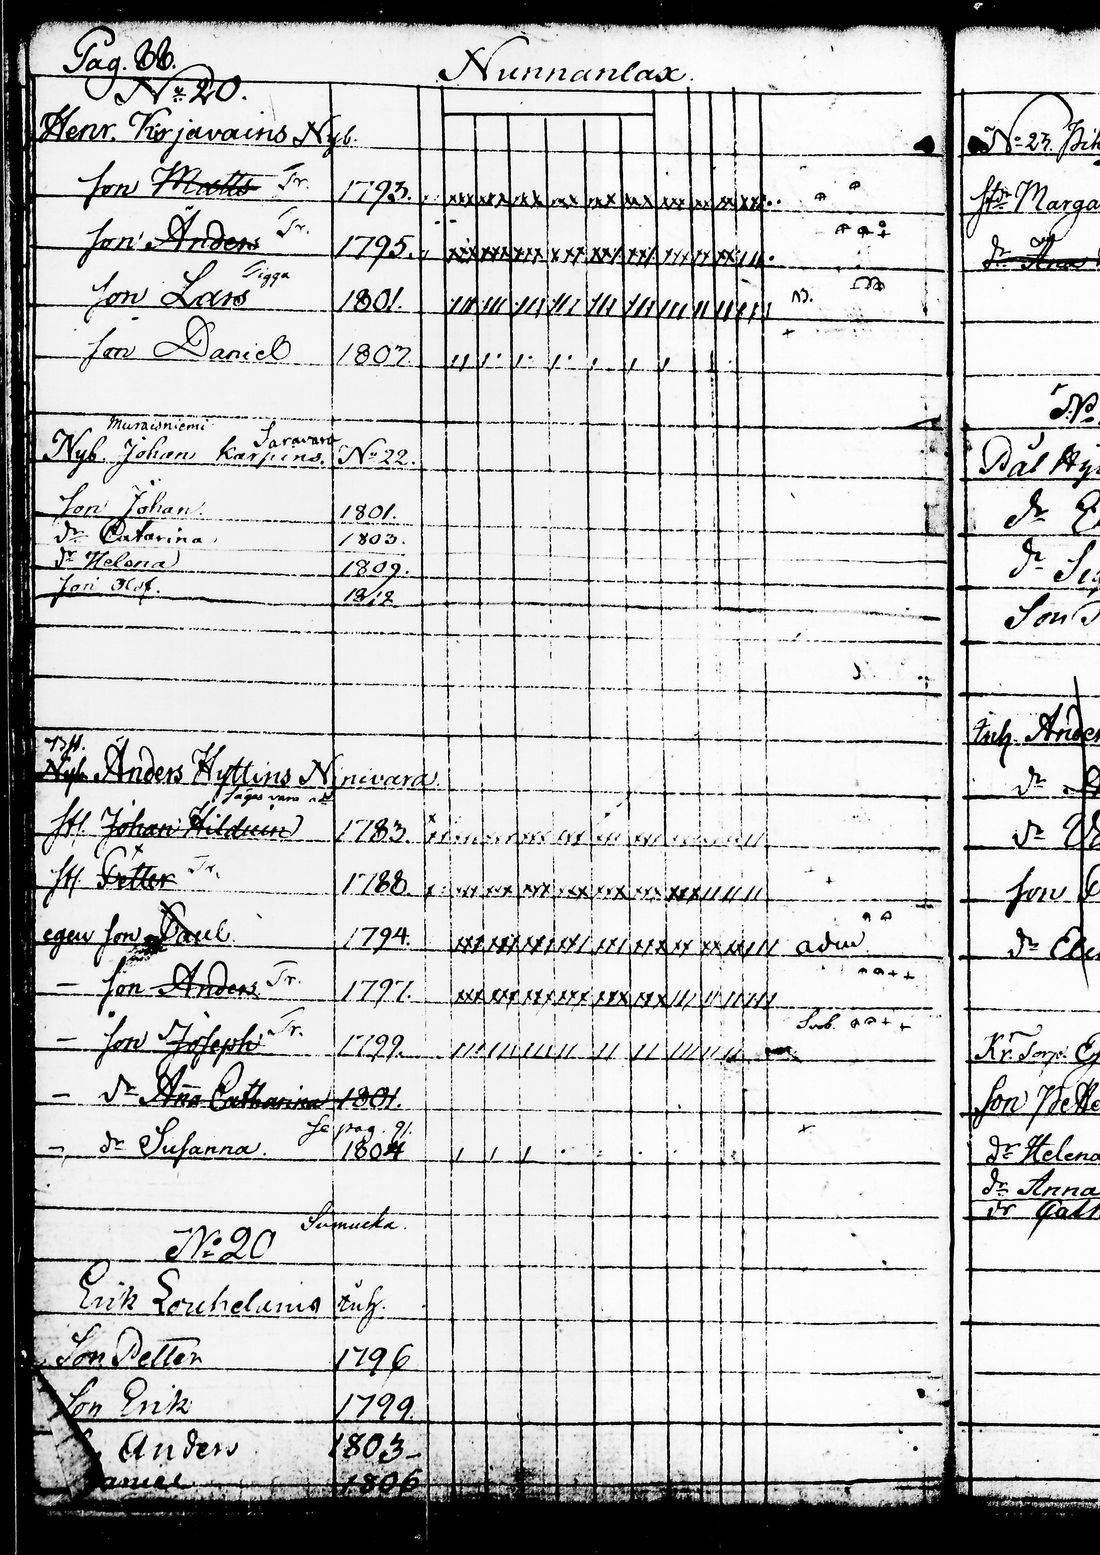 Pag. 88.
Nunnanlax.
No 20.
Henr. Kirjavains Nyb.
Son Matts Tr. 1793.
Son Anders Tr. 1795.
Tigga
Son Lars 1801.
Son Daniel 1807.
Muraisniemi
Saravara
Nyb. Johan Karpins. No 22.
Son Johan. 1801.
dr Catarina 1803.
dr Helena 1809.
Son Olof. 1812
Nyb. Anders Hyttins Ninivara.
Säges vara
Johan 1783
Petter Tr. 1788.
egen Son Paul 1794. adm.
— Son Anders Tr. 1797.
— Son Joseph Tr. 1799.
— dr Anna Catharina 1801.
Se pag. 91.
— dr Susanna. 1804
Sumucka.
No 20
Erik Louhelanis inh.
Son Petter 1796
Son Erik 1799.
Anders 1803
1806
No 23.
Marga
dr Ana
No
Pål Hy
dr
dr
Son
inh. Ander
dr
dr
Son
dr
Kr. Torp.
Son Pette
dr Helena
dr Anna
dr Cath